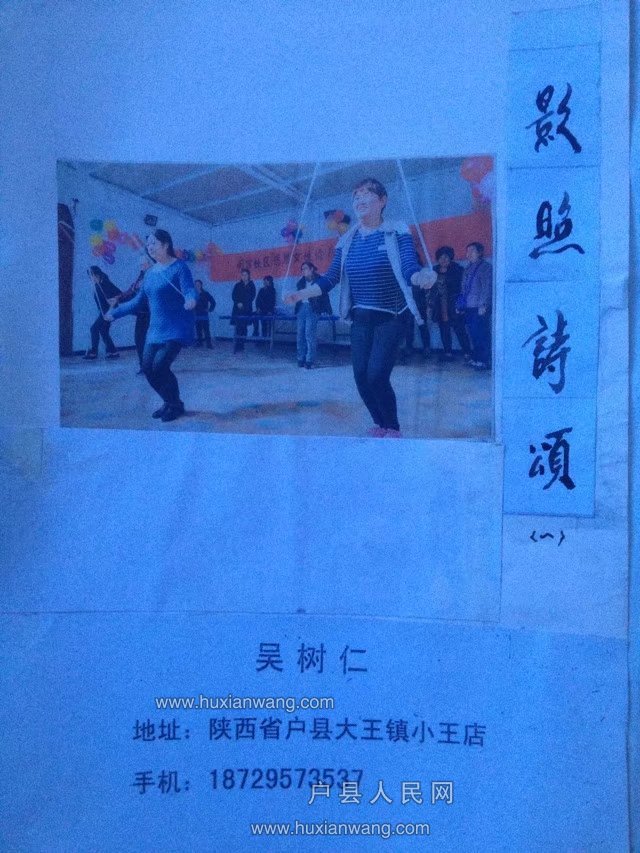 影照詩頌
〈一〉
吴树仁
www.huxianwang.com
地址：陕西省户县大王镇小王店
手机：18729573537
户县人民网
www.huxianwang.com